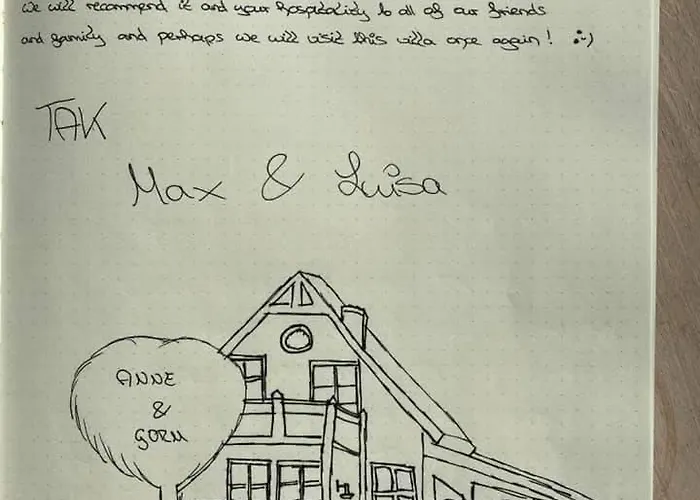 we will recommend it and your hospitality to all of our friends
and family and perhaps we will visit this villa once again! :-)
TAK
Max & Luisa
ANNE
&
GORM